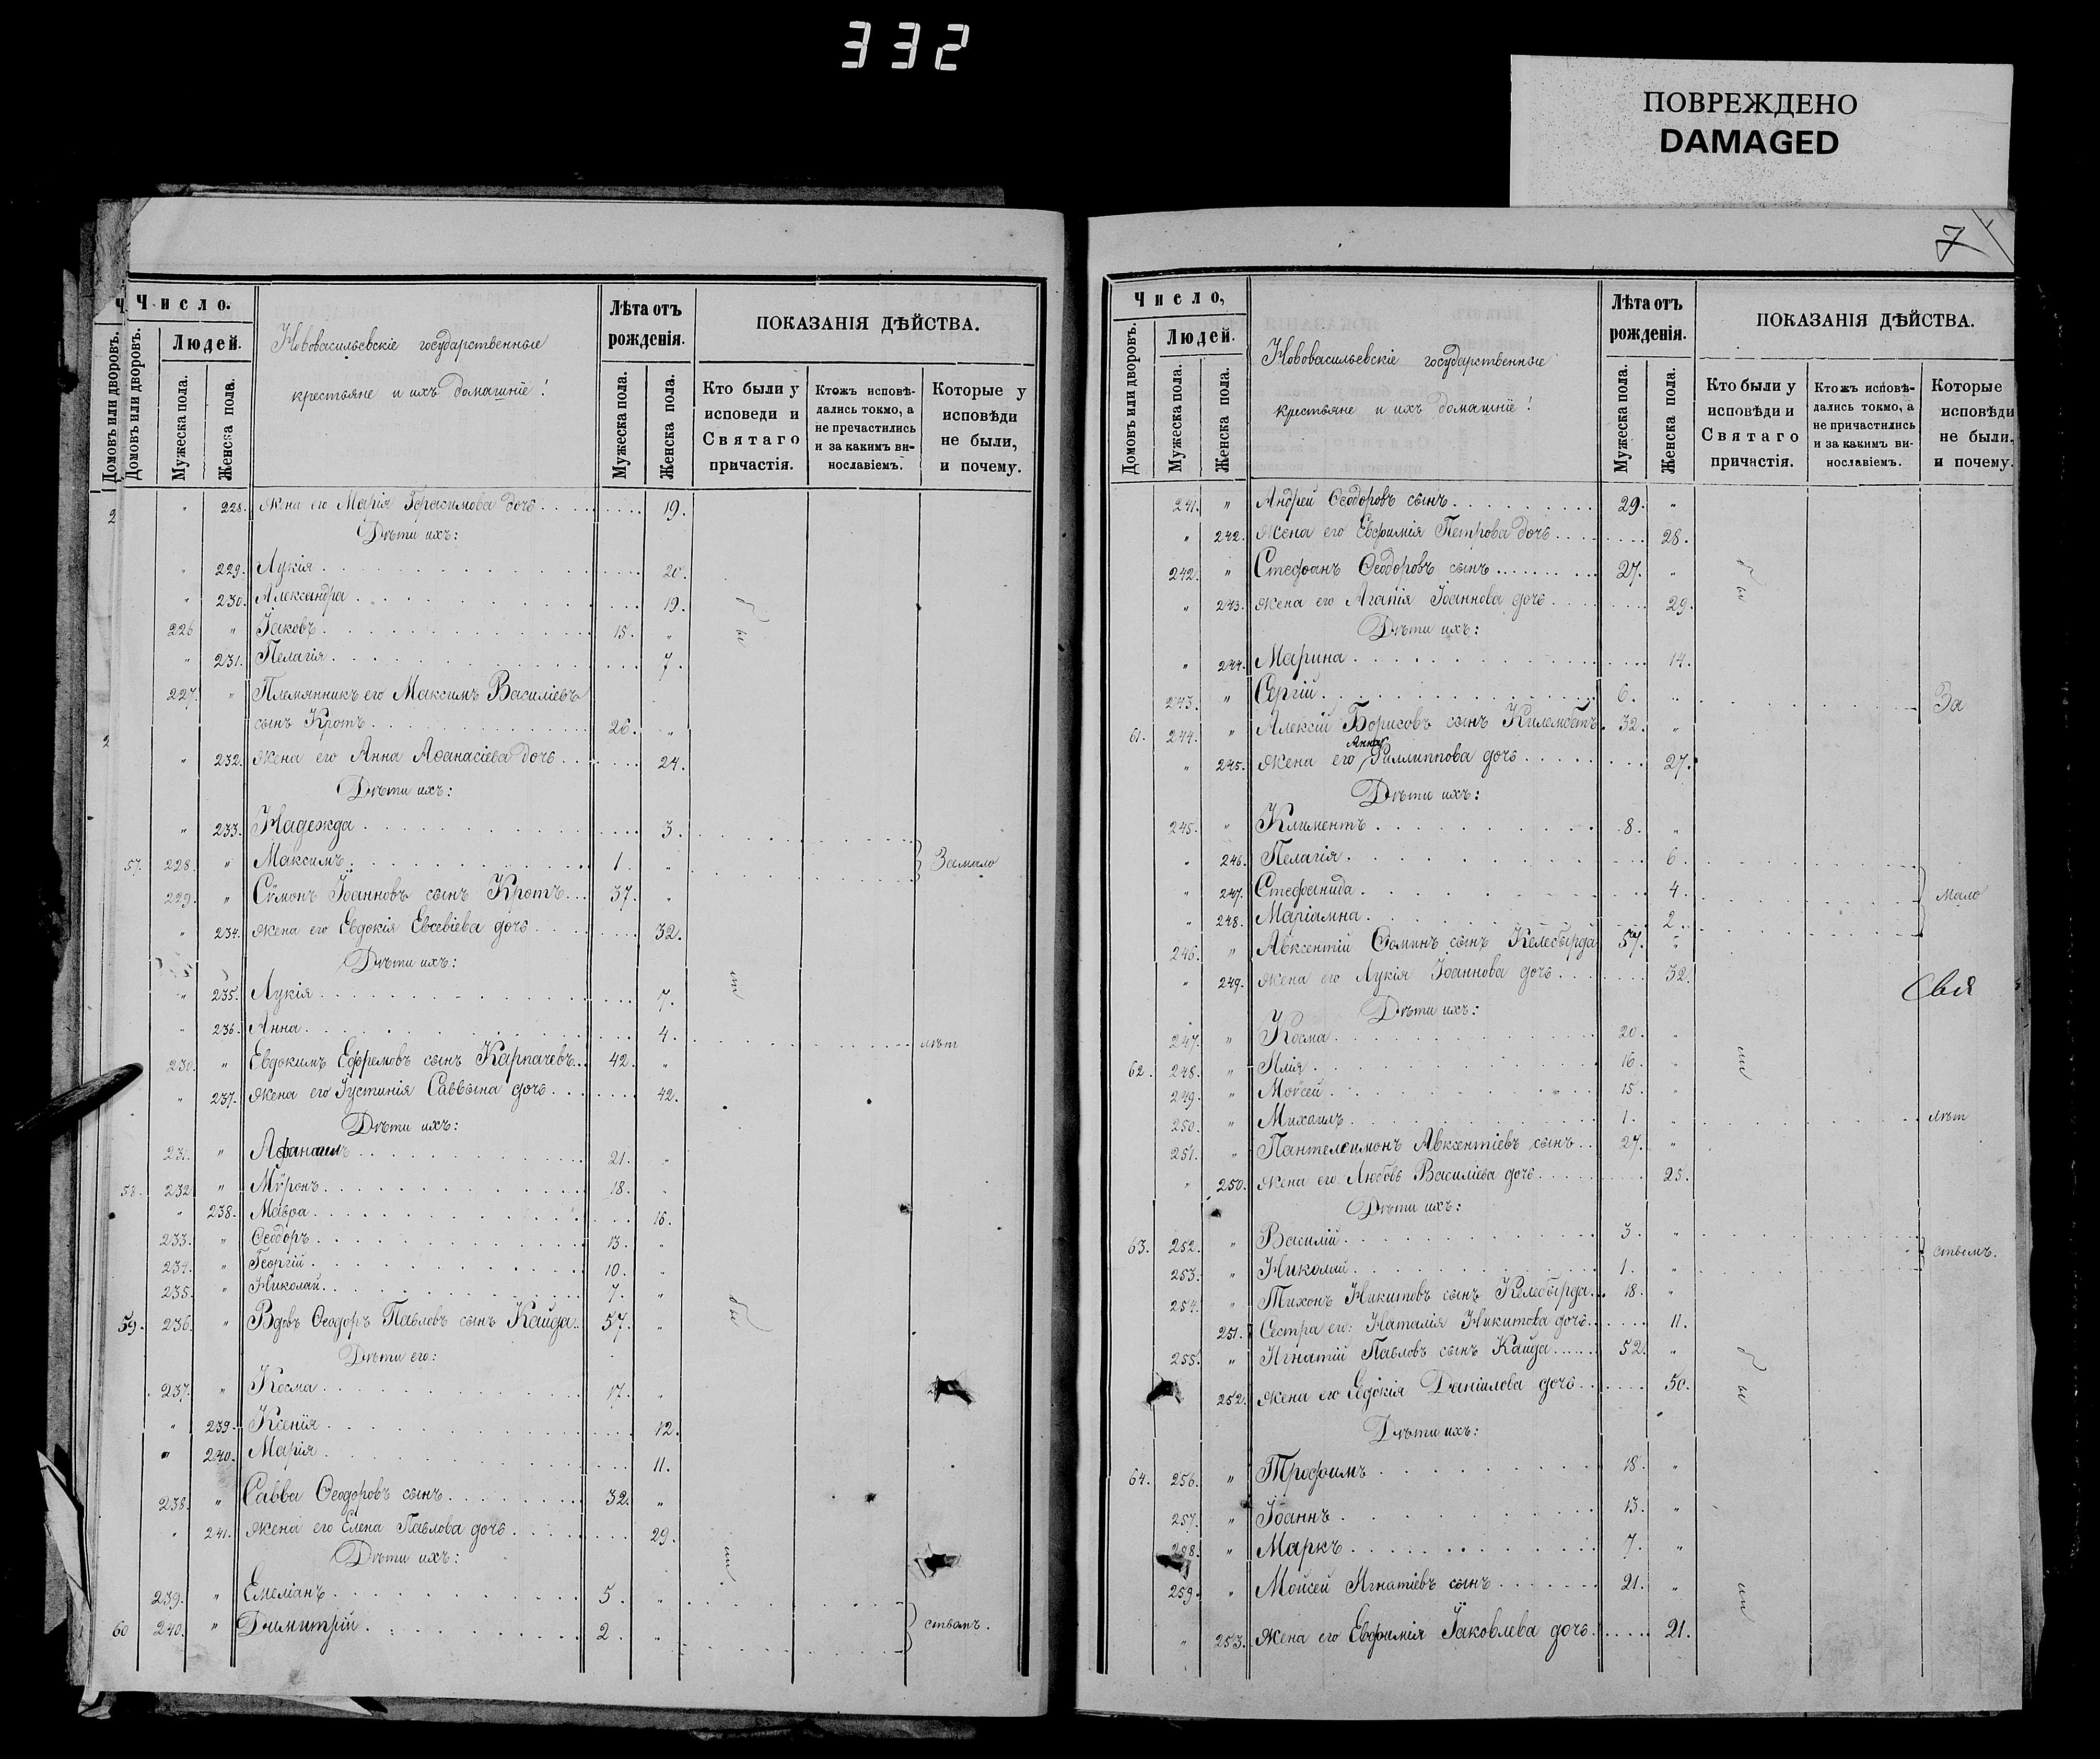 332
ПОВРЕЖДЕНО
DAMAGED
Число.
Домовъ или дворовъ.
Домовъ или дворовъ.
Людей.
Мужеска пола.
Женска пола.
Нововасильевскіе государственные
крестьяне и ихъ домашніе!
Лѣта отъ
рожденія.
Мужеска пола.
Женска пола.
ПОКАЗАНІЯ ДѢЙСТВА.
Кто были у
исповеди и
Святаго
причастія.
Ктожъ исповѣ-
дались токмо, а
не пречастились
и за какимъ ви-
нославіемъ.
Которые у
исповѣди
не были,
и почему.
2 " 228. Жена его Марія Герасимова дочь 19.
Дѣти ихъ:
" 229. Лукія 20.
" 230. Александра 19.
226 " Іаковъ 15. "
" 231. Пелагія 7.
227. " Племянникъ его Максимъ Василіевъ
сынъ Кротъ 26. "
2
" 232. Жена его Анна Аѳанасіева дочь 24.
Дѣти ихъ:
" 233. Надежда 3.
57. 228. " Максимъ 1. "
229. " Сѵмонъ Іоанновъ сынъ Кротъ 37. "
" 234. Жена его Евдокія Евсевіева дочь 32.
Дѣти ихъ:
" 235. Лукія 7.
" 236. Анна 4. лѣт
230. " Евдокимъ Ефремовъ сынъ Карпачевъ 42. "
" 237. Жена его Іустинія Саввына дочь 42.
Дѣти ихъ:
231. " 21. "
58. 232 " Мѵронъ 18. "
" 238. Мавра 16.
233. " Ѳеодоръ 13. "
234. " Георгій 10. "
235. " Николай 7. "
59. 236. " Вдовъ Ѳеодоръ Павловъ сынъ Кайда 57. "
Дѣти его:
237. " Косма 17. "
" 239. Ксенія 12.
" 240. Марія 11.
238. " Савва Ѳеодоровъ сынъ 32. "
" 241. Жена его Елена Павлова дочь 29.
Дѣти ихъ:
239. " Емеліанъ 5. "
60 240. " Димитрій 2. " ствомъ.
7
Число,
Домовъ или дворовъ.
Людей.
Мужеска пола.
Женска пола.
Нововасильевскіе государственные
крестьяне и ихъ домашніе!
Лѣта отъ
рожденія.
Мужеска пола.
Женска пола.
ПОКАЗАНІЯ ДѢЙСТВА.
Кто были у
исповѣди и
Святаго
причастія.
Ктожъ исповѣ-
дались токмо, а
не причастились
и за какимъ ви-
нославіемъ.
Которые
исповѣди
не были,
и почему.
241. " Андрей Ѳеодоровъ сынъ 29. "
" 242. Жена его Евфимія Петрова дочь 28.
242. " Стефанъ Ѳеодоровъ сынъ 27. "
" 243. Жена его Агапія Іоаннова дочь 29.
Дѣти ихъ:
" 244. Марина 14.
243. " Сергій 6. " За
61. 244. " Алексій Борисовъ сынъ 32. "
Анна
" 245. Жена его Филлиппова дочь 27.
Дѣти ихъ:
245. " Климентъ 8. "
" 246. Пелагія 6.
" 247. Стефанида 4. мало
" 248. Маріамна 2.
246. " Авксентій Ѳоминъ сынъ Келебѣрда 57. "
" 249. Жена его Лукія Іоаннова дочь 32.
Дѣти ихъ:
247. " Косма 20. "
62. 248. " Илія 16. "
249. " Моисей 15. "
250. " Михаилъ 1. " лѣт
251. " Пантелеимонъ Авксентіевъ сынъ 27. "
" 250. Жена его Любовь Василіева дочь 25.
Дѣти ихъ:
63. 252. " Василій 3. "
ствомъ.
253. " Николай 1. "
254. " Тихонъ Никитовъ сынъ Келебѣрда 18. "
251. Сестра его: Наталія Никитова дочь 11.
255. " Игнатій Павловъ сынъ Кайда 52. "
252. Жена его Евдокія Даніилова дочь 50.
Дѣти ихъ:
64. 256. " Трофимъ 18. "
257. " Іоаннъ 13. "
258. " Маркъ 7. "
259. " Моисей Игнатіевъ сынъ 21. "
" 253. Жена его Евфимія Іаковлева дочь 21.